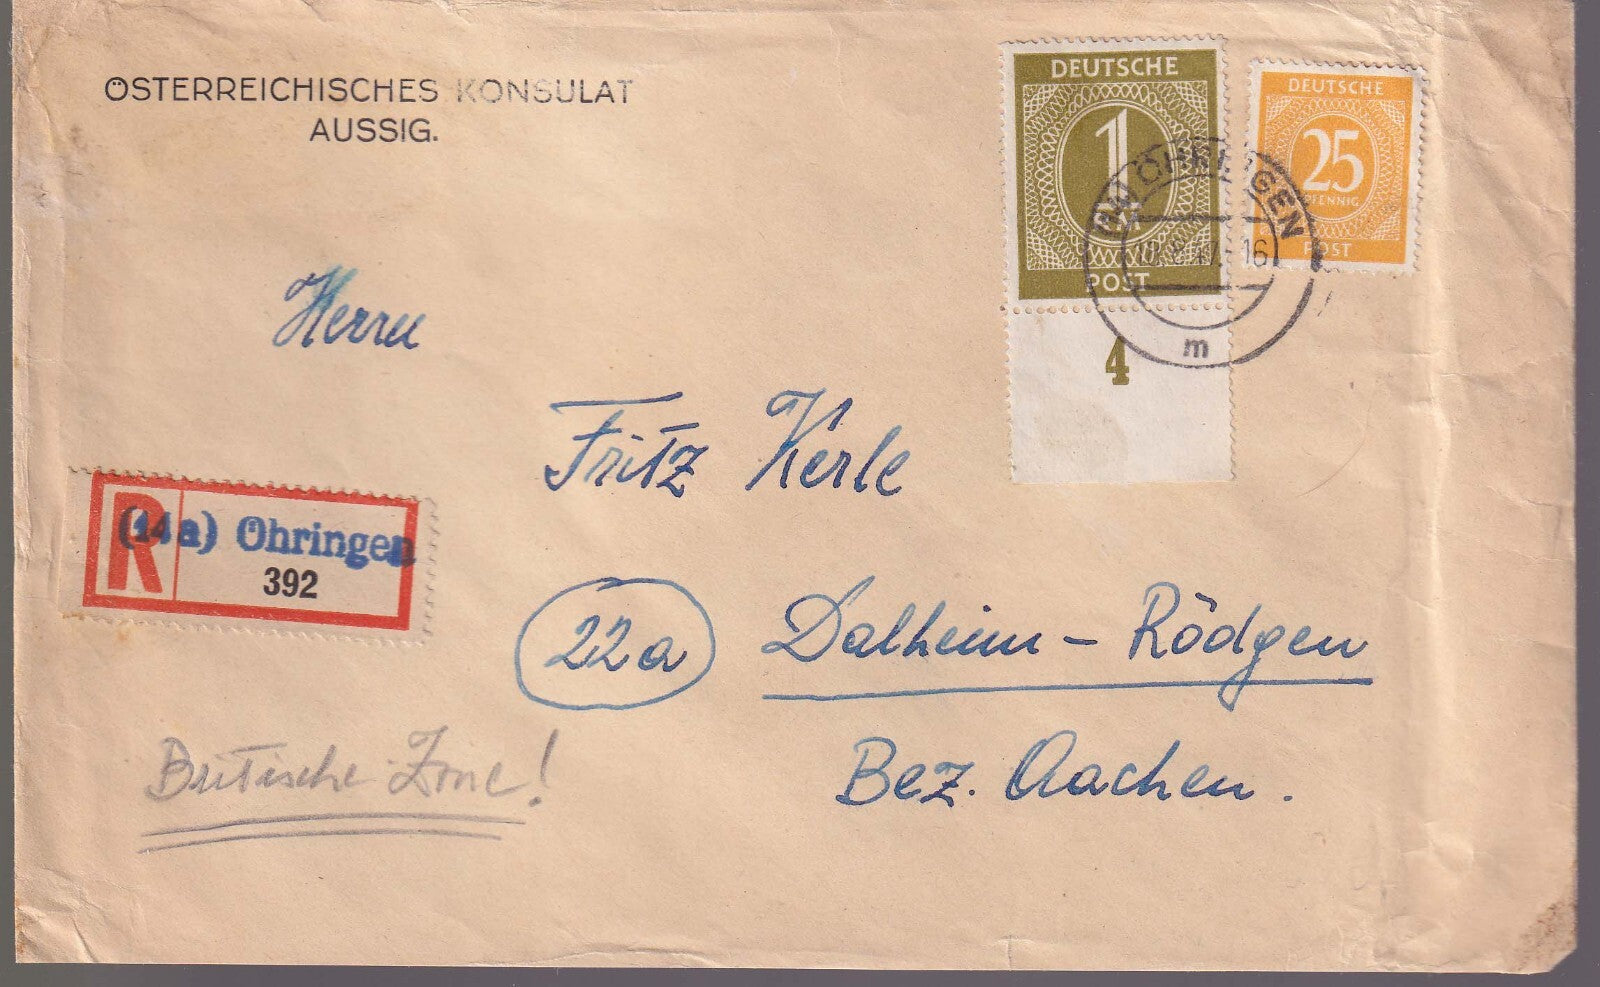 ÖSTERREICHISCHES KONSULAT
AUSSIG.
DEUTSCHE
1
POST
4
DEUTSCHE
25
PFENNIG
POST
ÖHRINGEN
.8.47.-16
m
Herrn
Fritz Kerle
R
(14a) Öhringen
392
22a Dalheim-Rödgen
Bez. Aachen.
Britische Zone!